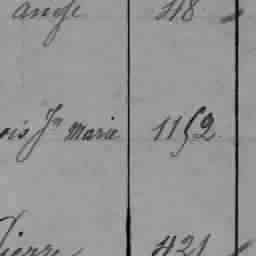 ange 418
ois Jn Marie 1152
Pierre 421